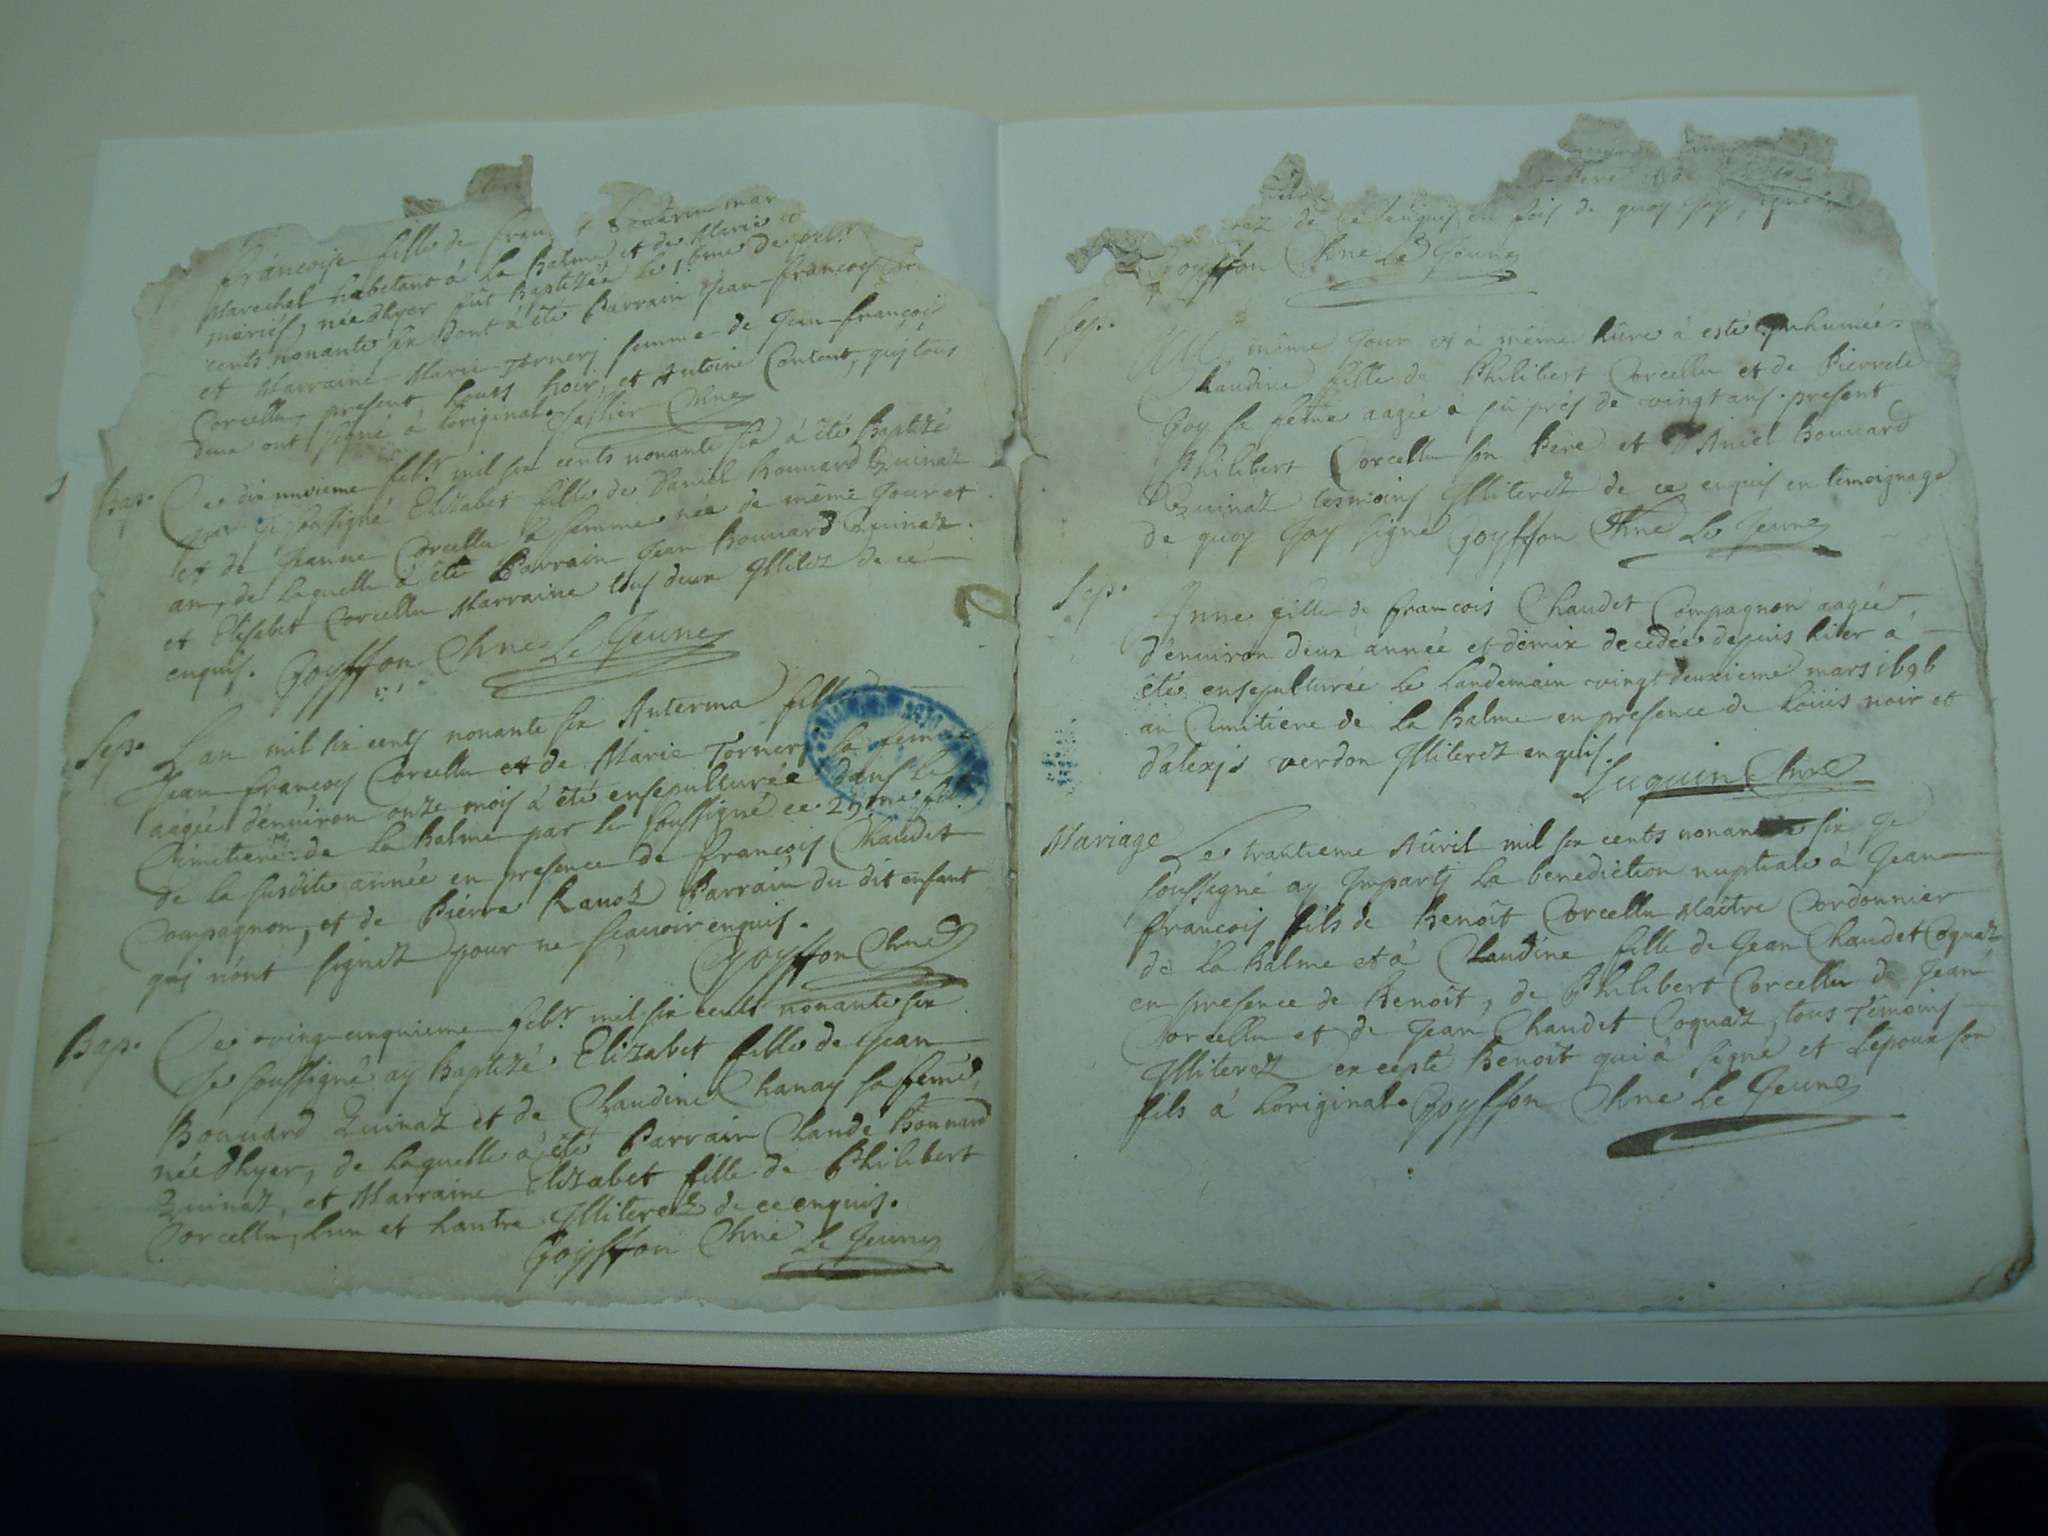 françoise fille de fran
Marechal habitant à La Balme et de Marie
mariés, née dhyer fut Baptizée le
cents nonante six dont à été Parrain Jean-françois
et Marraine Marie Tornery femme de Jean-françois
Corcellu present Louis Noir, et Antoine Content, qui tous
deux ont signé à loriginal Chne
Bap. Ce dix nuvieme feb.r mil six cents nonante six à été Baptizé
par je soussigné Elizabet fille de Daniel Bouuard Quinaz
et de Jeanne Corcellu sa femme née de même Jour et
an, de laquelle à été Parrain Jean Bouuard Quinaz
et Elisabet Corcellu Marraine tous deux Illitez de ce
enquis. Goyffon Chne Le Jeune
Sep. L an mil six cents nonante six Anterma fille
Jean françois Corcellu et de Marie Tornery sa femme
aagée d'enuiron onze mois à été ensepulturée dans le
Cimitiere de la Balme par le soussigné ce 29me feb.
de la susdite année en presence de françois Chaudet
Compagnon, et de Pierre Rauoz Parrain du dit enfant
qui nont signez pour ne sçauoir enquis.
Goyffon Chne
Bap. Ce ving-cinquieme feb.r mil six cents nonante six
Je soussigné ay Baptizé Elizabet fille de Jean
Bouuard Quinaz et de Claudine Chanay sa feme,
née dhyer, de laquelle à été Parrain Claude Bouuard
Quinaz, et Marraine Elizabet fille de Philibert
Corcellu, lun et lautre Illiterez de ce enquis.
Goyffon Chne Le Jeune
rez de ce enquis en fois de quoy Jay signé
Goyffon Chne Le Jeune
Sep. même Jour et à même hûre à esté Inhumée
Claudine fille de Philibert Corcellu et de Pierrete
Goy sa feme aagée à pû prés de vingt ans. present
Philibert Corcellu son Pere et Daniel Bouuard
Quinaz tesmoins Illiterez de ce enquis en temoignage
de quoy Jay signé Goyffon Chne Le Jeune
Sep. Anne fille de francois Chaudet Compagnon aagée
d'enuiron deux année et demix decedée depuis hier à
été ensepulturée le landemain vingt deuxieme mars 1696
au Cimitiere de la Balme en presence de Loüis noir et
d'alexis verdon Illiterez enquis.
Luquin Chne
Mariage Le trantieme Aûril mil six cents nonante six Je
soussigné ay Imparti la benediction nuptiale à Jean
françois fils de Benoît Corcellu Maître Cordonnier
de la Balme et à Claudine fille de Jean Chaudet Coquaz
en presence de Benoît, de Philibert Corcellu de Jean
Corcellu et de Jean Chaudet Coquaz, tous témoins
Illiterez en cepté Benoît qui à signé et Lepoux son
fils à Loriginal. Goyffon Chne Le Jeune